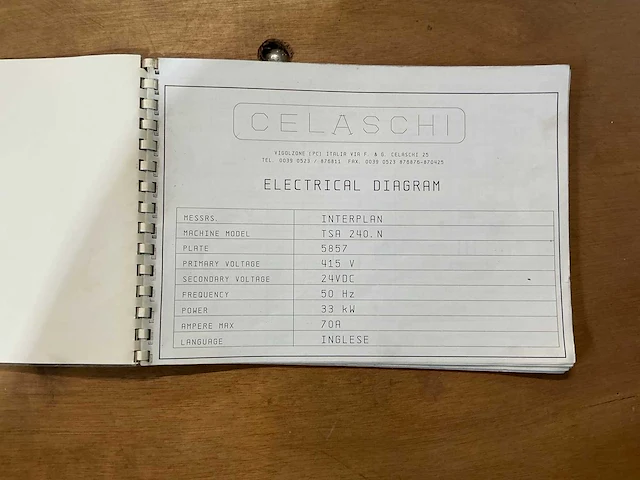 CELASCHI
VIGOLZONE (PC) ITALIA VIA P. & G. CELASCHI 25
TEL. 0039 0523 / 876811 FAX. 0039 0523 876876-870425
ELECTRICAL DIAGRAM
MESSRS. INTERPLAN
MACHINE MODEL TSA 240.N
PLATE 5857
PRIMARY VOLTAGE 415 V
SECONDARY VOLTAGE 24VDC
FREQUENCY 50 Hz
POWER 33 kW
AMPERE MAX 70A
LANGUAGE INGLESE